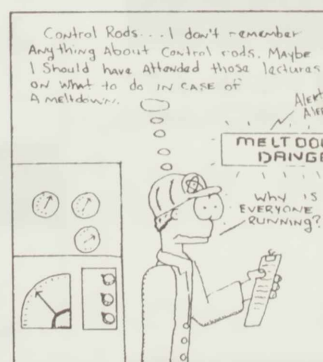 Control Rods... I don't remember
Anything About Control rods. Maybe
I Should have Attended those lectures
on What to do IN CASE of
A meltdown.
Alert
Aler
MELTDOW
DANGE
Why is
EVERYONE
RUNNING?